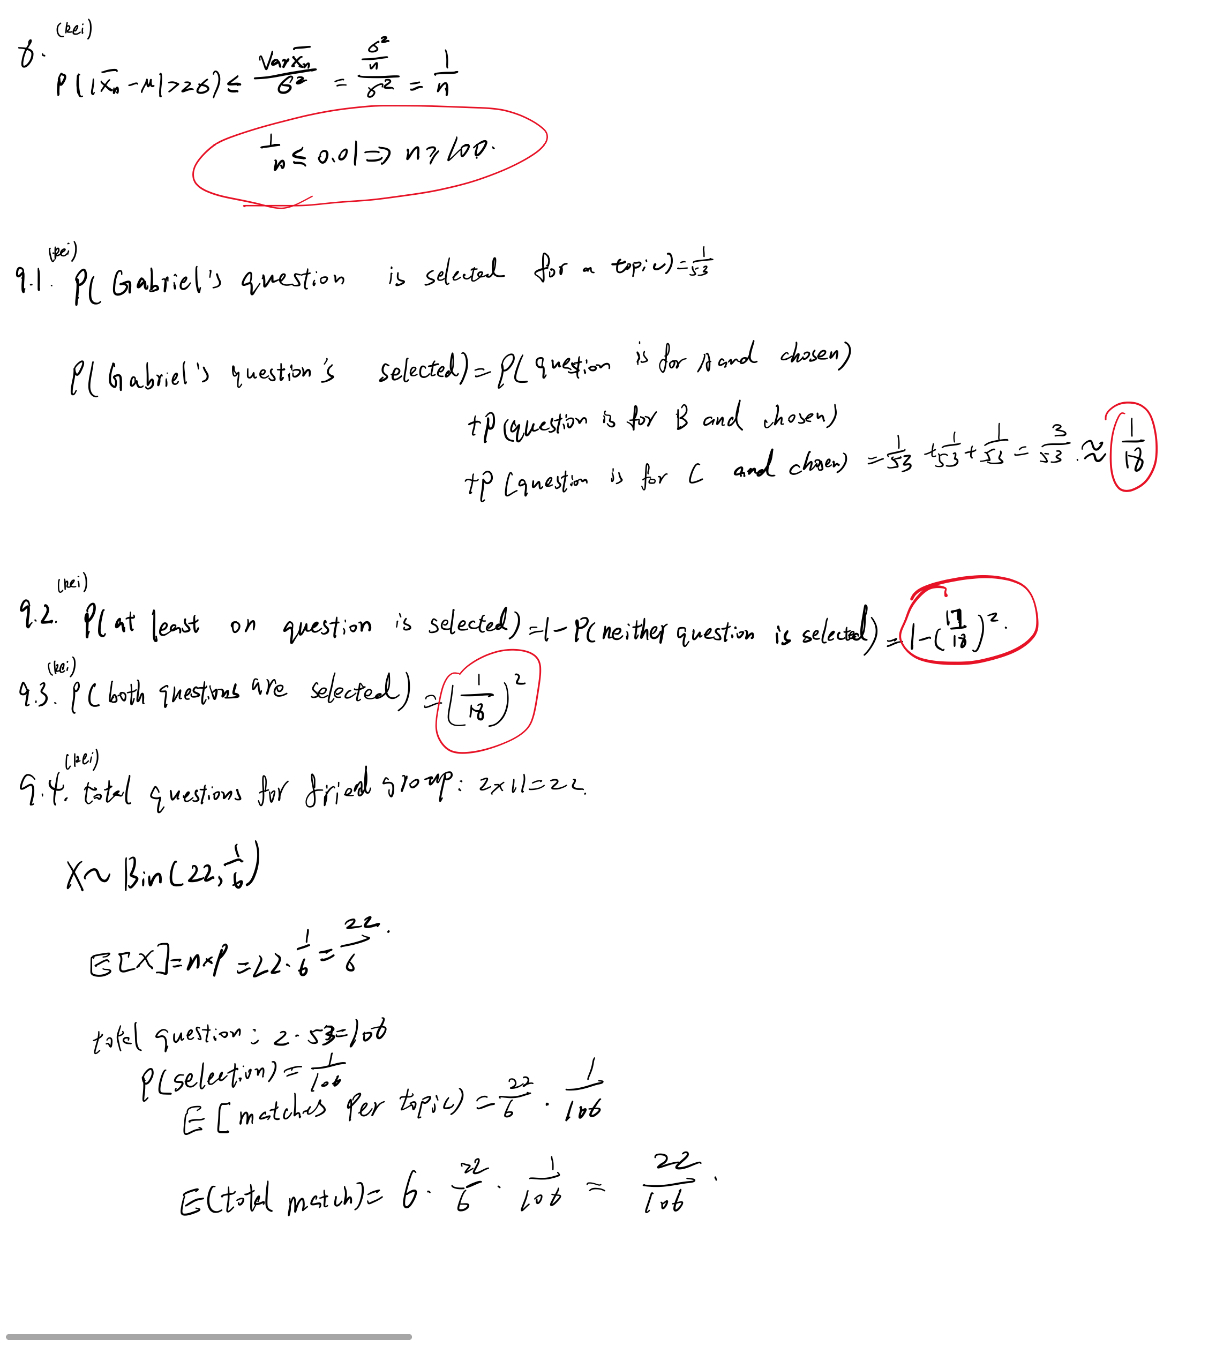 (kei)
8. P(|X̄ₙ - μ| > 2σ) ≤ Var X̄ₙ / σ² = (σ²/n) / σ² = 1/n
1/n ≤ 0.01 ⇒ n ≥ 100.
(kei)
9.1. P( Gabriel's question is selected for a topic) = 1/53
P( Gabriel's question's selected) = P( question is for A and chosen)
+P (question is for B and chosen)
+P (question is for C and chosen) = 1/53 + 1/53 + 1/53 = 3/53 . ≈ 1/18
(kei)
9.2. P( at least on question is selected) = 1 - P( neither question is selected) = 1 - (17/18)².
(kei)
9.3. P( both questions are selected) = (1/18)²
(kei)
9.4. total questions for friend group: 2×11=22.
X ~ Bin(22, 1/6)
E[X] = n×p = 22 · 1/6 = 22/6 .
total question: 2 · 53 = 106
P(selection) = 1/106
E [matches per topic) = 22/6 · 1/106
E(total match) = 6 · 22/6 · 1/106 = 22/106 .